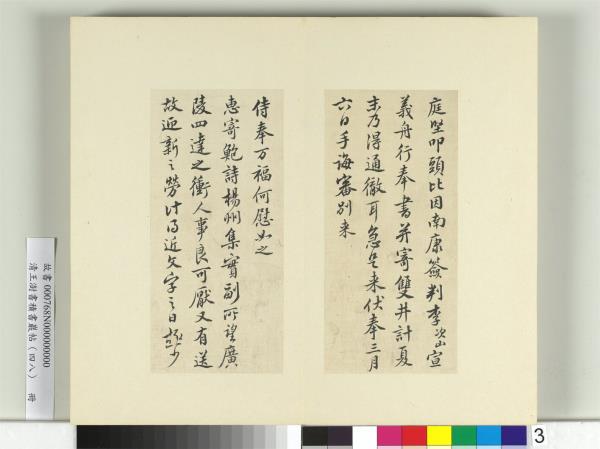 庭堅叩頭比因南康簽判李次山宣
義舟行奉書并寄雙井計夏
末乃得通徹耳急足来伏奉三月
六日手誨審別来
侍奉万福何慰如之
惠寄鮑詩楊州集實副所望廣
陵四達之衝人事良可厭又有送
故迎新之勞計得近文字之日極少
故書 000768N000000000
清王澍書積書巖帖（四八） 冊
3